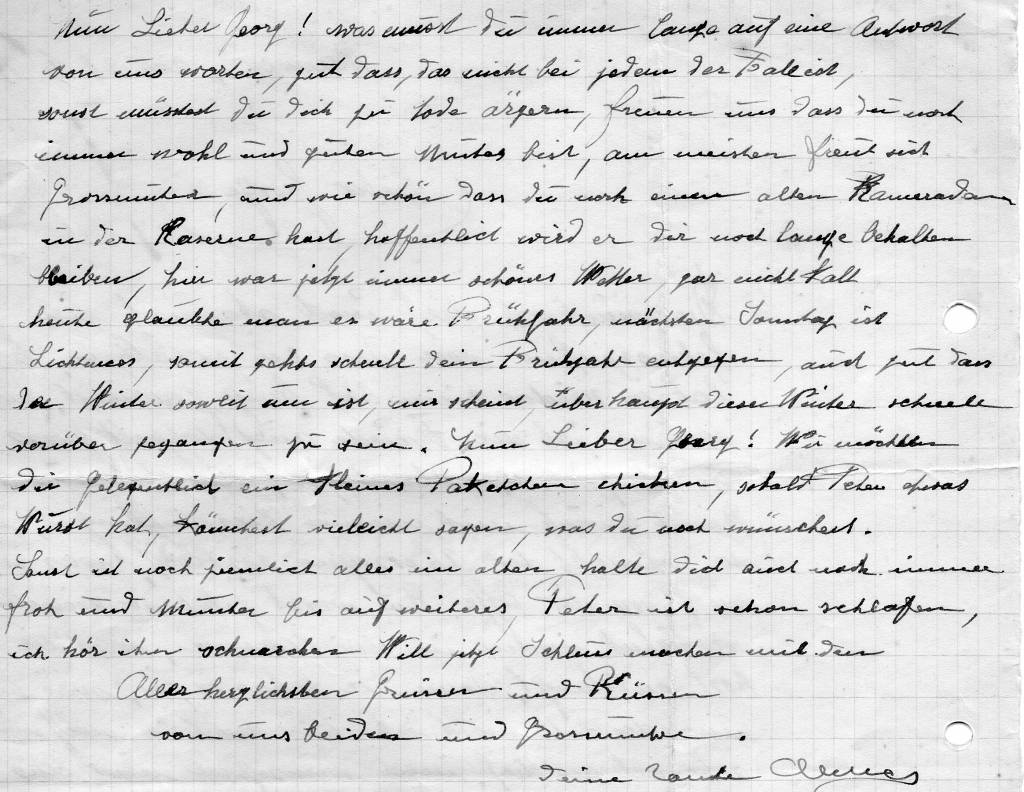 Nun Lieber Georg! was must du immer lange auf eine Antwort
von uns warten, gut dass, das nicht bei jedem der Fall ist,
sonst müsstest du dich zu tode ärgern, freuen uns dass du noch
immer wohl und guten Mutes bist, am meisten freut sich
Grossmutter, und wie schön dass du noch einen alten Kameraden
in der Kaserne hast, hoffentlich wird er dir noch lange behalten
bleiben, hier war jetzt immer schönes Wetter, gar nicht kalt
heute glaubte man es wäre Frühjahr, nächsten Sonntag ist
Lichtmess, somit gehts schnell dem Frühjahr entgegen, und gut dass
der Winter soweit um ist, mir scheint, überhaupt dieser Winter schnell
vorüber gegangen zu sein. Nun Lieber Georg! Wir möchten
dir gelegentlich ein kleines Paketchen schicken, sobald Peter etwas
Wurst hat, könntest vieleicht sagen, was du noch wünschest.
Sonst ist noch ziemlich alles im alten halte dich auch noch immer
froh und Munter bis auf weiteres, Peter ist schon schlafen,
ich hör ihn schnarchen Will jetzt Schluss machen mit den
Aller herzlichsten Grüssen und Küssen
von uns beiden und Grossmutter.
deine Tante Agnes